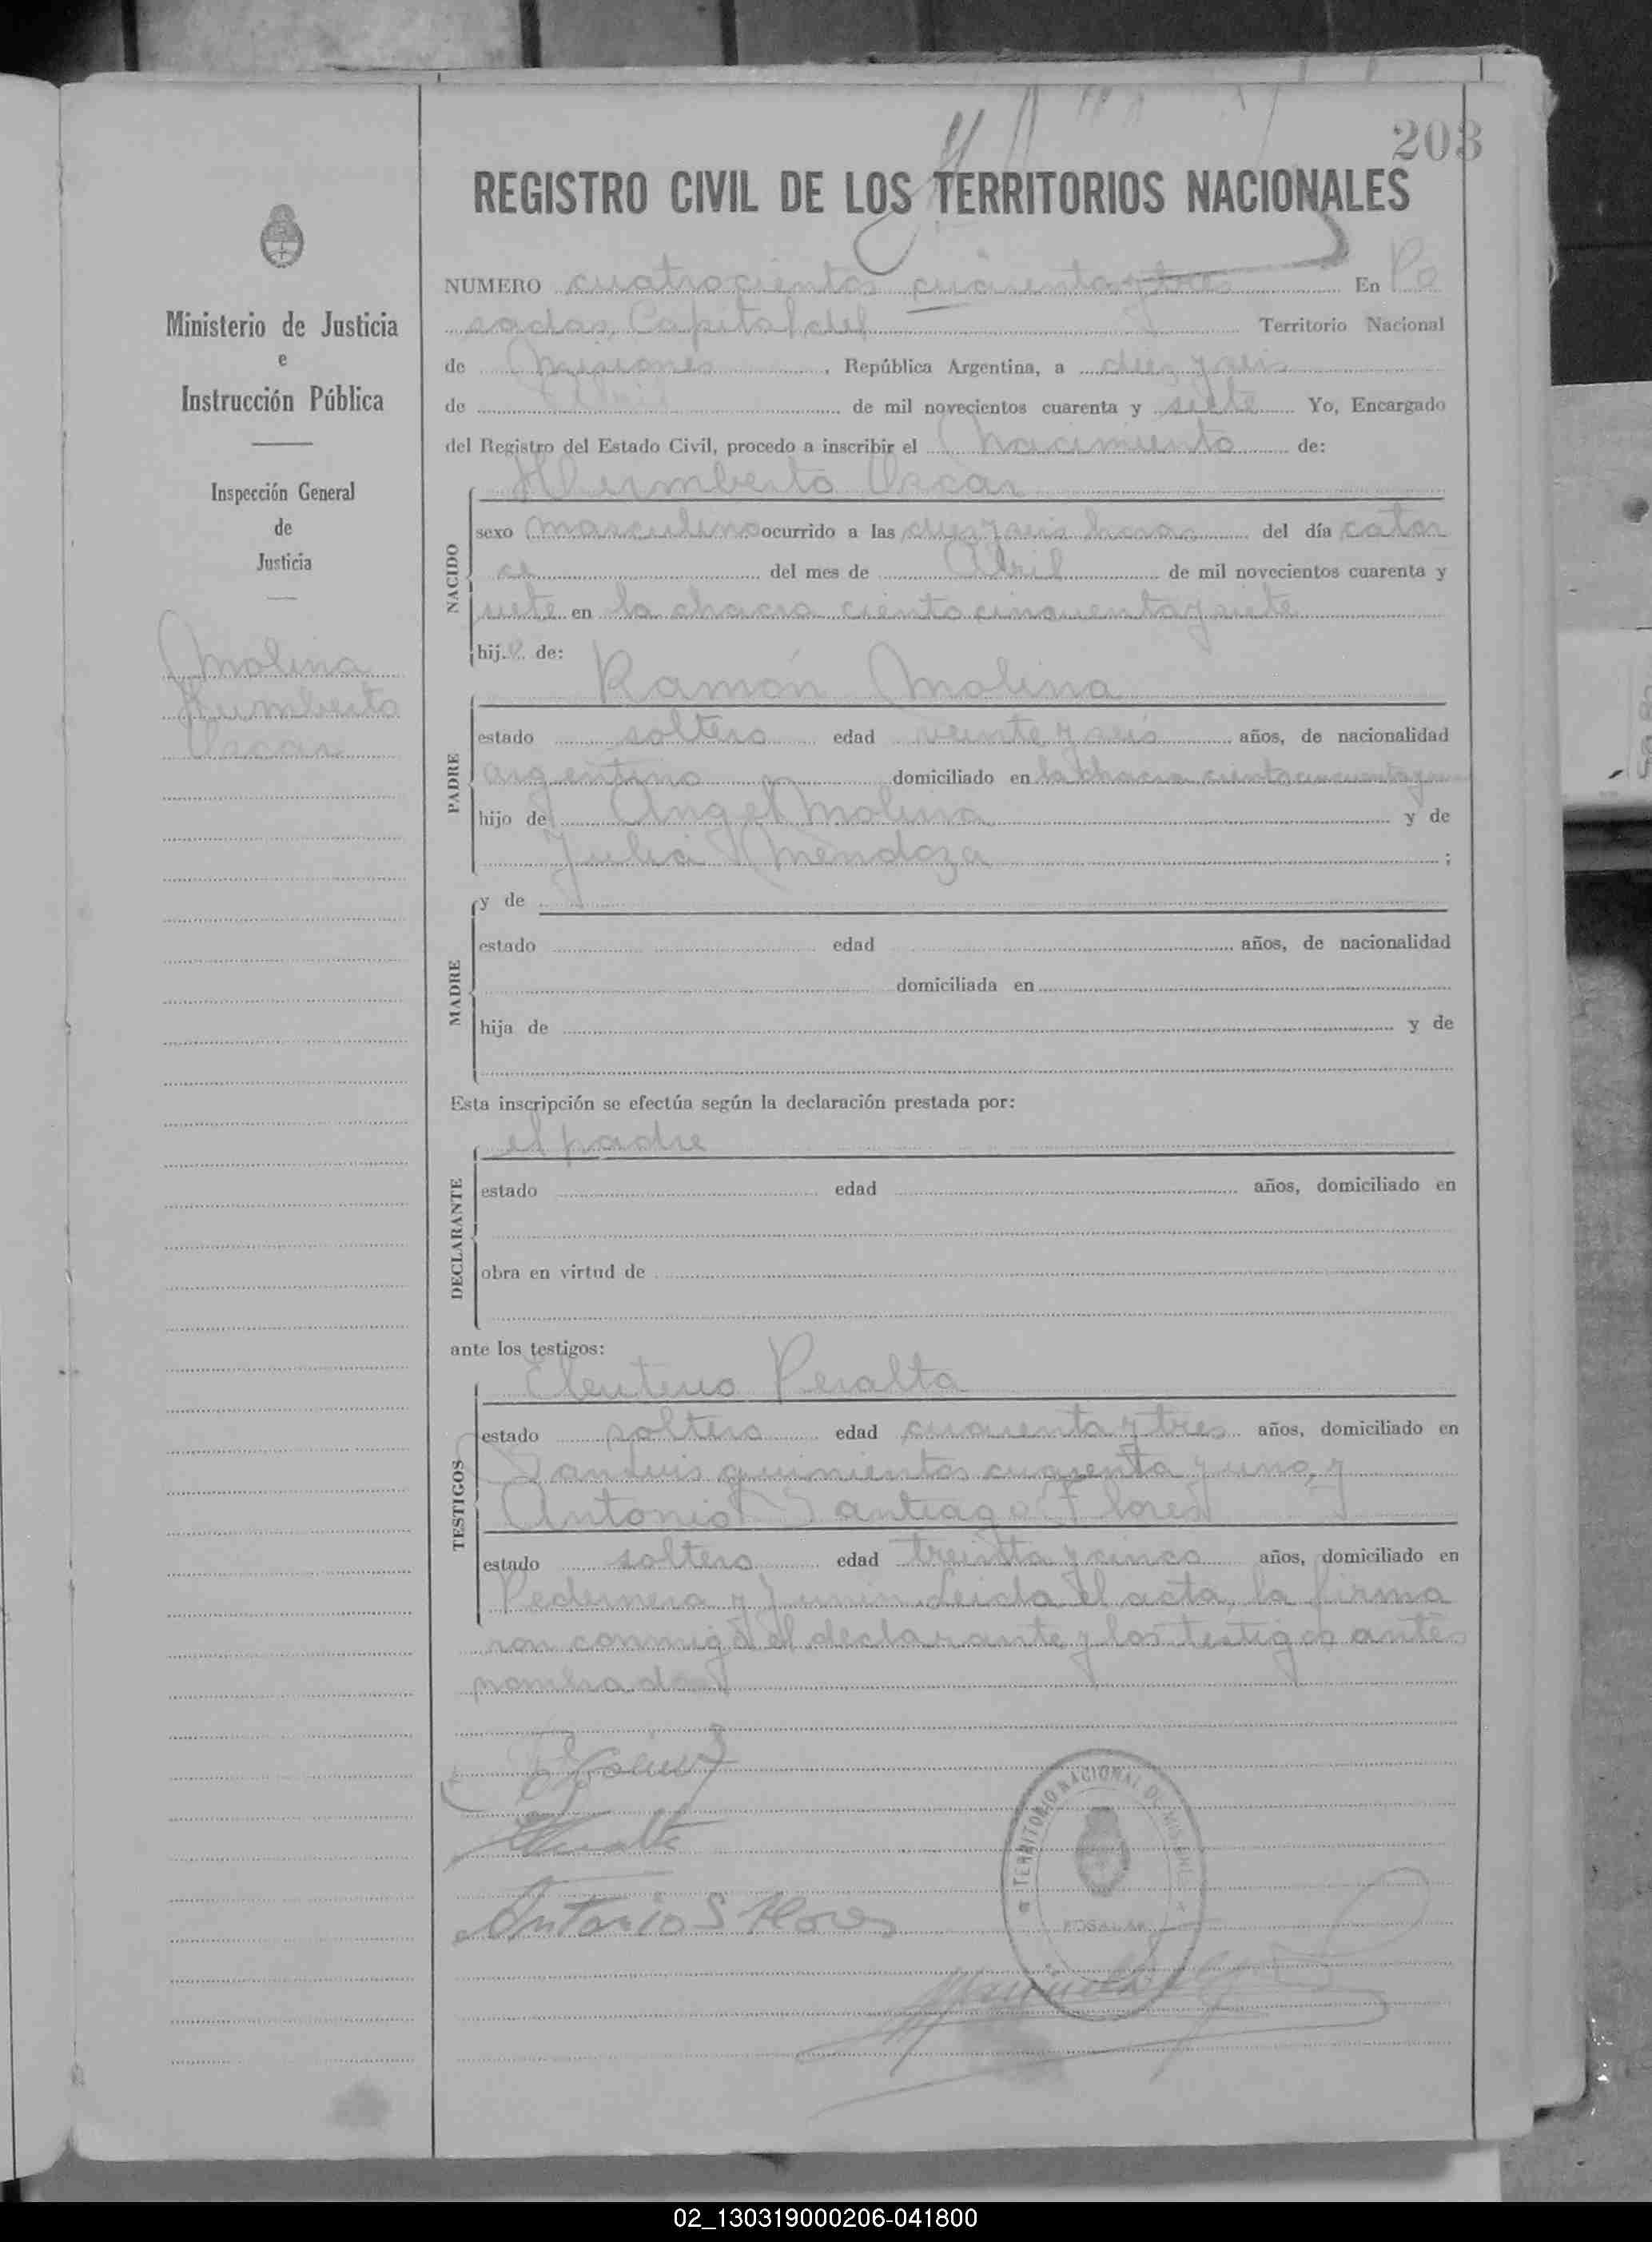 203
REGISTRO CIVIL DE LOS TERRITORIOS NACIONALES
Ministerio de Justicia
e
Instrucción Pública
Inspección General
de
Justicia
Molina
Humberto
Oscar
NUMERO cuatrocientos cuarenta y tres En Po
sadas, Capital del Territorio Nacional
de Misiones, República Argentina, a diez y seis
de Abril de mil novecientos cuarenta y siete Yo, Encargado
del Registro del Estado Civil, procedo a inscribir el Nacimiento de:
NACIDO
Humberto Oscar
sexo masculino ocurrido a las diez y seis horas del día cator
ce del mes de Abril de mil novecientos cuarenta y
siete en la chacra ciento cincuenta y siete
hijo de:
PADRE
Ramón Molina
estado soltero edad veinte y seis años, de nacionalidad
argentino domiciliado en la chacra ciento cincuenta y
hijo de Angel Molina y de
Julia Mendoza ;
MADRE
y de
estado edad años, de nacionalidad
domiciliada en
hija de y de
Esta inscripción se efectúa según la declaración prestada por:
DECLARANTE
el padre
estado edad años, domiciliado en
obra en virtud de
ante los testigos:
TESTIGOS
Eleuterio Peralta
estado soltero edad cuarenta y tres años, domiciliado en
San Luis quinientos cuarenta y uno, y
Antonio Santiago Flores
estado soltero edad treinta y cinco años, domiciliado en
Pedernera y Junin. Leida el acta, la firma
ron conmigo el declarante y los testigos antes
nombrados
EPeralta
Antonio S Flores
TERRITORIO NACIONAL DE MISIONES
POSADAS
02_130319000206-041800